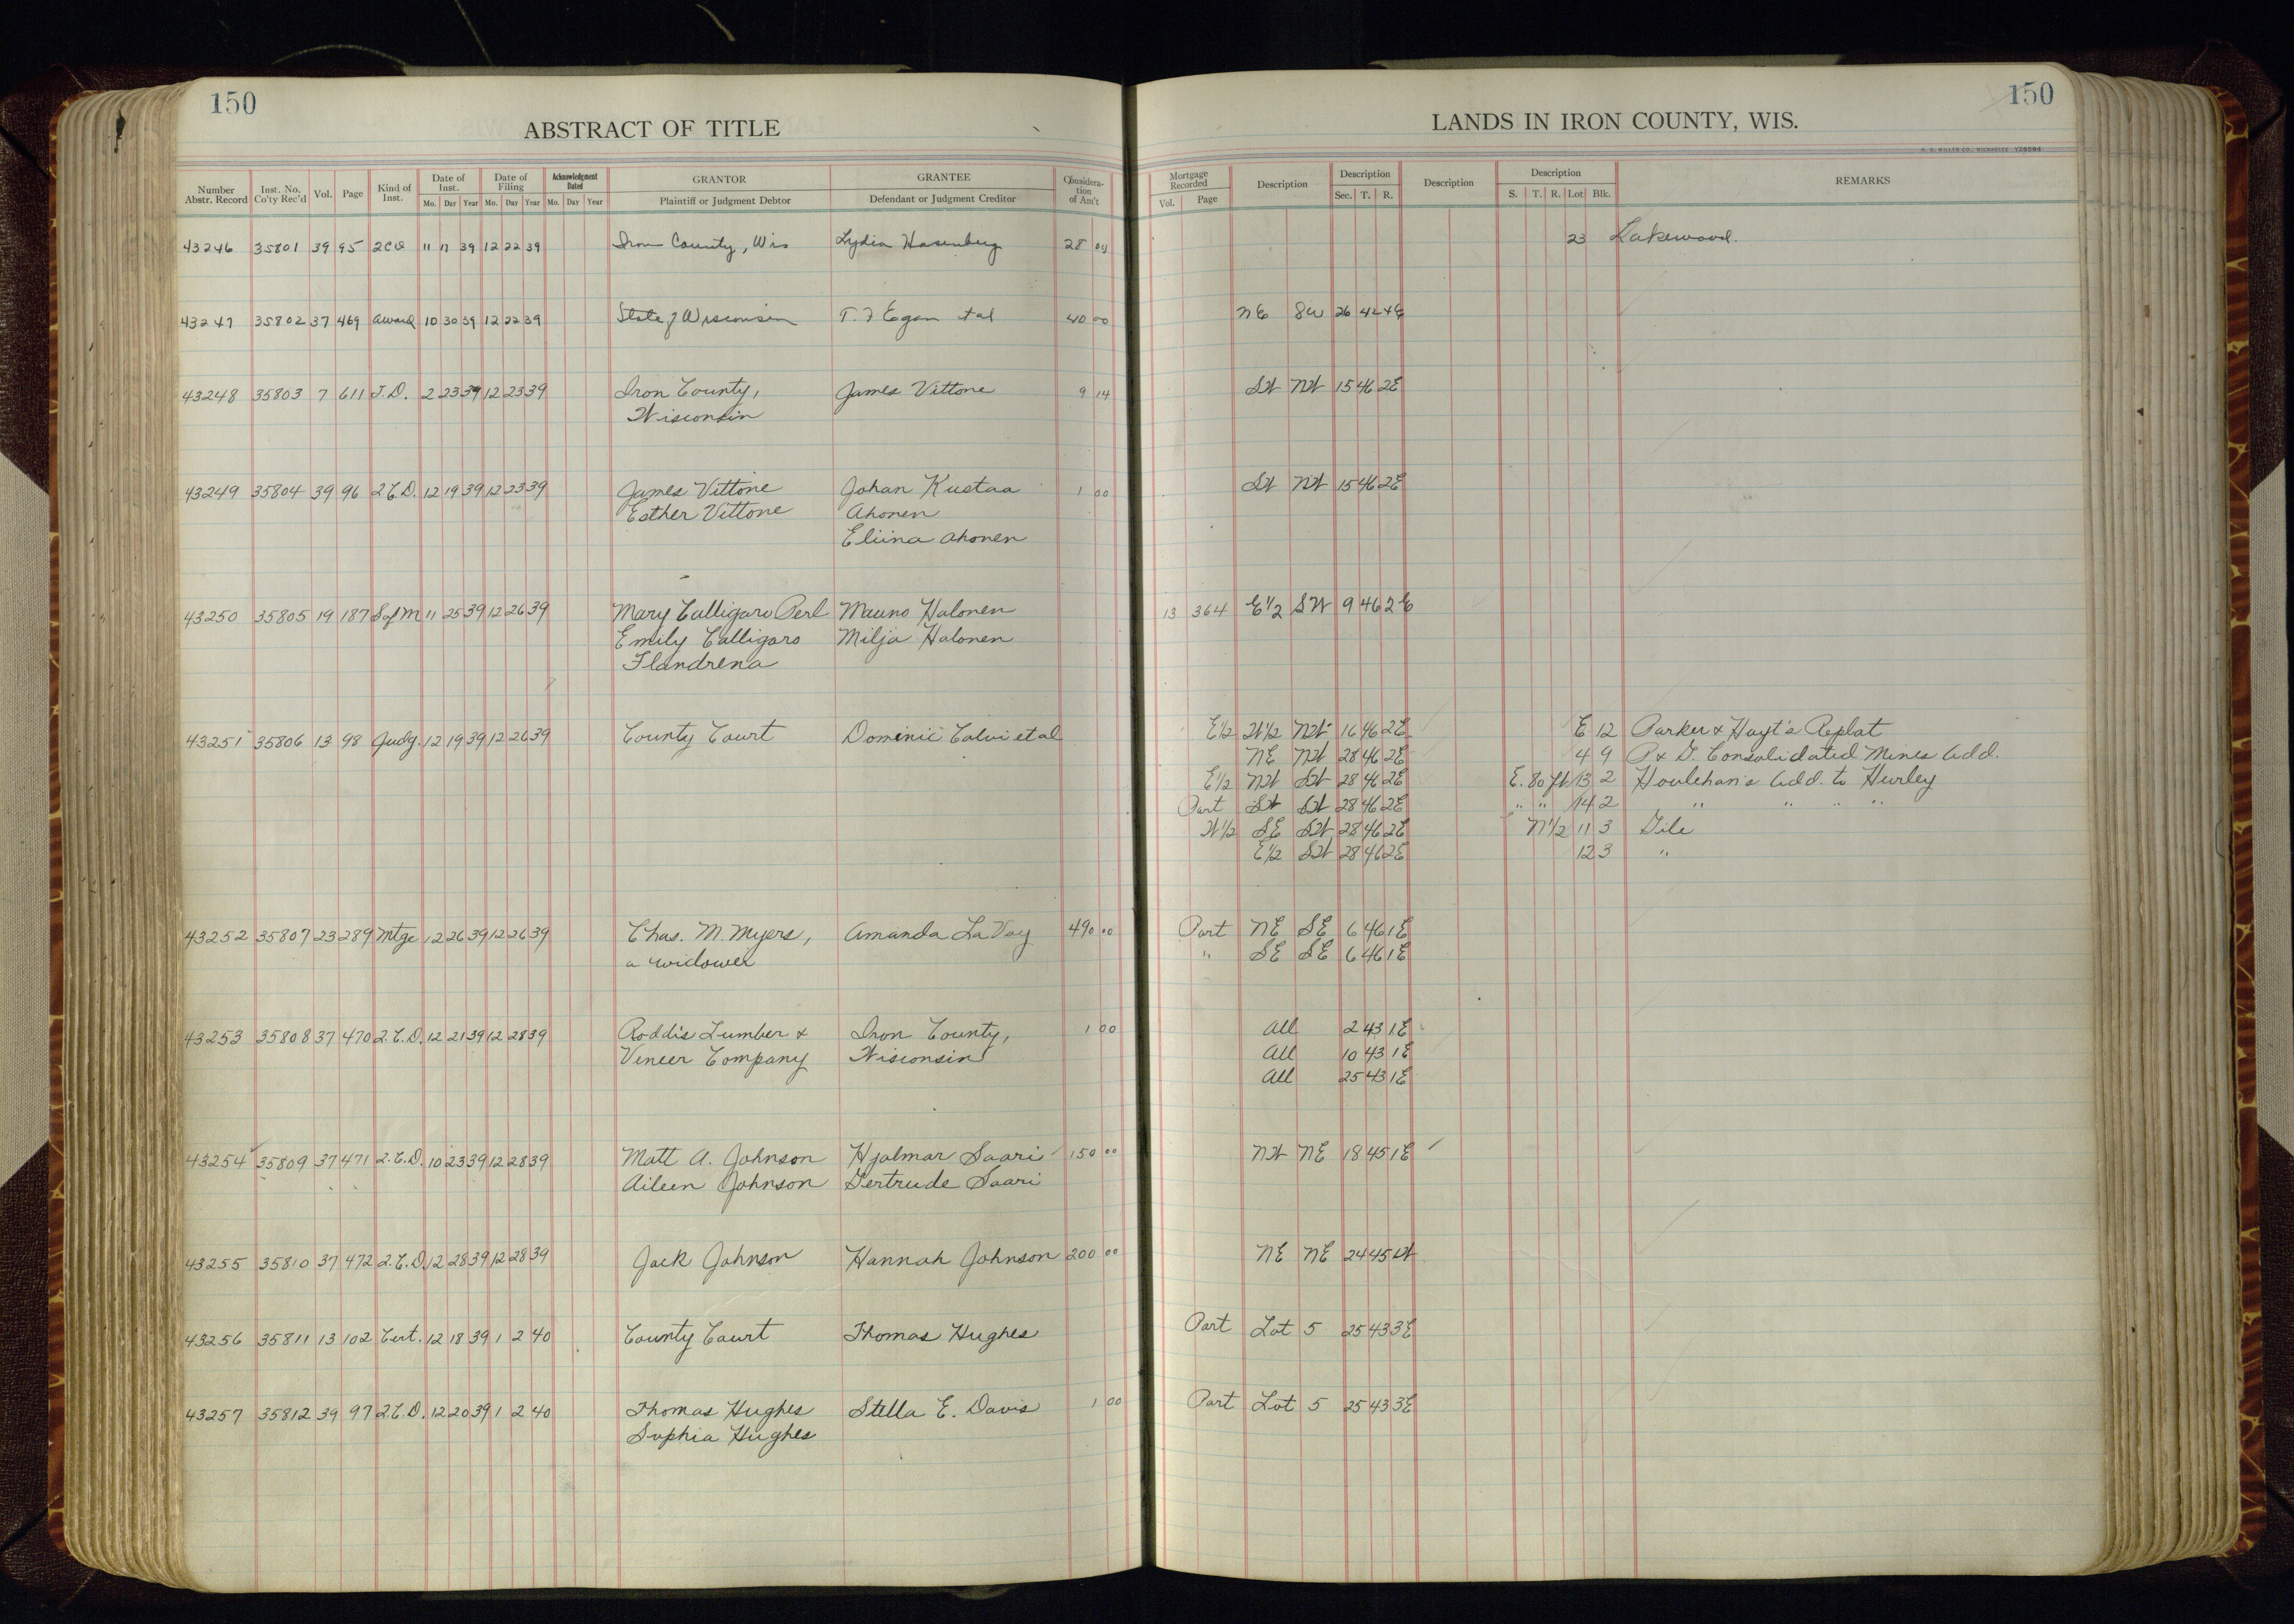 150
ABSTRACT OF TITLE
Number Abstr. Record Inst. No. Co'ty Rec'd Vol. Page Kind of Inst. Date of Inst. Mo. Day Year Date of Filing Mo. Day Year Acknowledgment Dated Mo. Day Year GRANTOR Plaintiff or Judgment Debtor GRANTEE Defendant or Judgment Creditor Consideration of Am't
43246 35801 39 95 2CD 11 17 39 12 22 39 Iron County, Wis Lydia Hasenberg 28 04
43247 35802 37 469 Award 10 30 39 12 22 39 State of Wisconsin T. F Egan et al 40 00
43248 35803 7 611 T.D. 2 23 39 12 23 39 Iron County, James Vittone 9 14
Wisconsin
43249 35804 39 96 2.C.D. 12 19 39 12 23 39 James Vittone Johan Kustaa 1 00
Esther Vittone Ahonen
Eliina Ahonen
43250 35805 19 187 Sof M 11 25 39 12 26 39 Mary Calligaro Perl Mauno Halonen
Emily Calligaro Milja Halonen
Flandrena
43251 35806 13 98 Judg. 12 19 39 12 26 39 County Court Dominic Calvi et al
43252 35807 23 289 Mtge 12 26 39 12 26 39 Chas. M. Myers, Amanda La Voy 490 00
a widower
43253 35808 37 470 2.C.D. 12 21 39 12 28 39 Roddis Lumber & Iron County, 1 00
Veneer Company Wisconsin
43254 35809 37 471 2.C.D. 10 23 39 12 28 39 Matt A. Johnson Hjalmar Saari 150 00
Aileen Johnson Gertrude Saari
43255 35810 37 472 2.C.D. 12 28 39 12 28 39 Jack Johnson Hannah Johnson 200 00
43256 35811 13 102 Cert. 12 18 39 1 2 40 County Court Thomas Hughes
43257 35812 39 97 2.C.D. 12 20 39 1 2 40 Thomas Hughes Stella E. Davis 1 00
Sophia Hughes
150
LANDS IN IRON COUNTY, WIS.
H. C. MILLER CO., MILWAUKEE Y28594
Mortgage Recorded Vol. Page Description Description Sec. T. R. Description Description S. T. R. Lot Blk. REMARKS
23 Lakewood.
NE SW 26 42 4E
SW NW 15 46 2E
SW NW 15 46 2E
13 364 E½ SW 9 46 2E
E½ W½ NW 16 46 2E E 12 Parker & Hoyt's Replat
NE NW 28 46 2E 4 9 P & G. Consolidated Mines Add.
E½ NW SW 28 46 2E E. 80 ft 13 2 Houlehan's Add. to Hurley
Part SW SW 28 46 2E " " 14 2 " " " "
W½ SE SW 28 46 2E N½ 11 3 Gile
E½ SW 28 46 2E 12 3 "
Part NE SE 6 46 1E
" SE SE 6 46 1E
All 2 43 1E
All 10 43 1E
All 25 43 1E
NW NE 18 45 1E
NE NE 24 45 1W
Part Lot 5 25 43 3E
Part Lot 5 25 43 3E